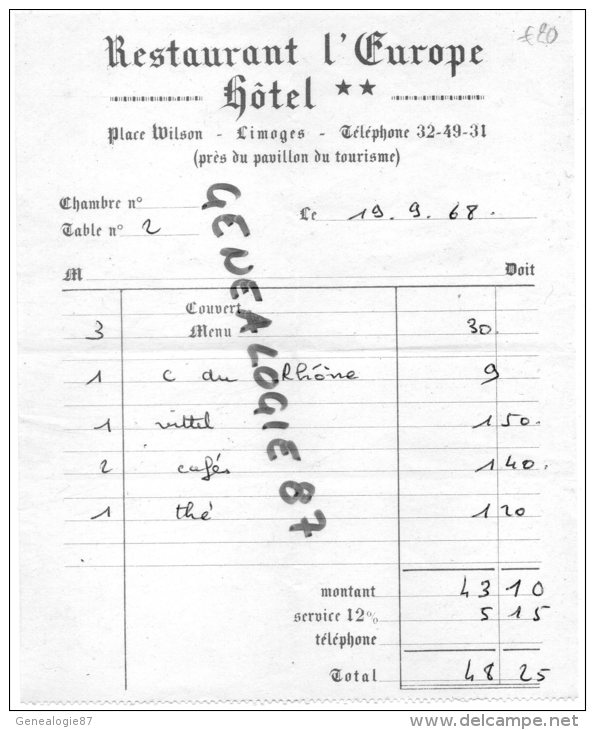 £20
Restaurant l'Europe
Hôtel ★★
Place Wilson - Limoges - Téléphone 32-49-31
(près du pavillon du tourisme)
Chambre n°
Le 19. 9. 68.
Table n° 2
M Doit
Couvert
3 Menu 30.
1 C du Rhône 9
1 vittel 1 50.
2 cafés 1 40.
1 thé 1 20
montant 43 10
service 12% 5 15
téléphone
Total 48 25
GENEALOGIE 87
Genealogie87
www.delcampe.net